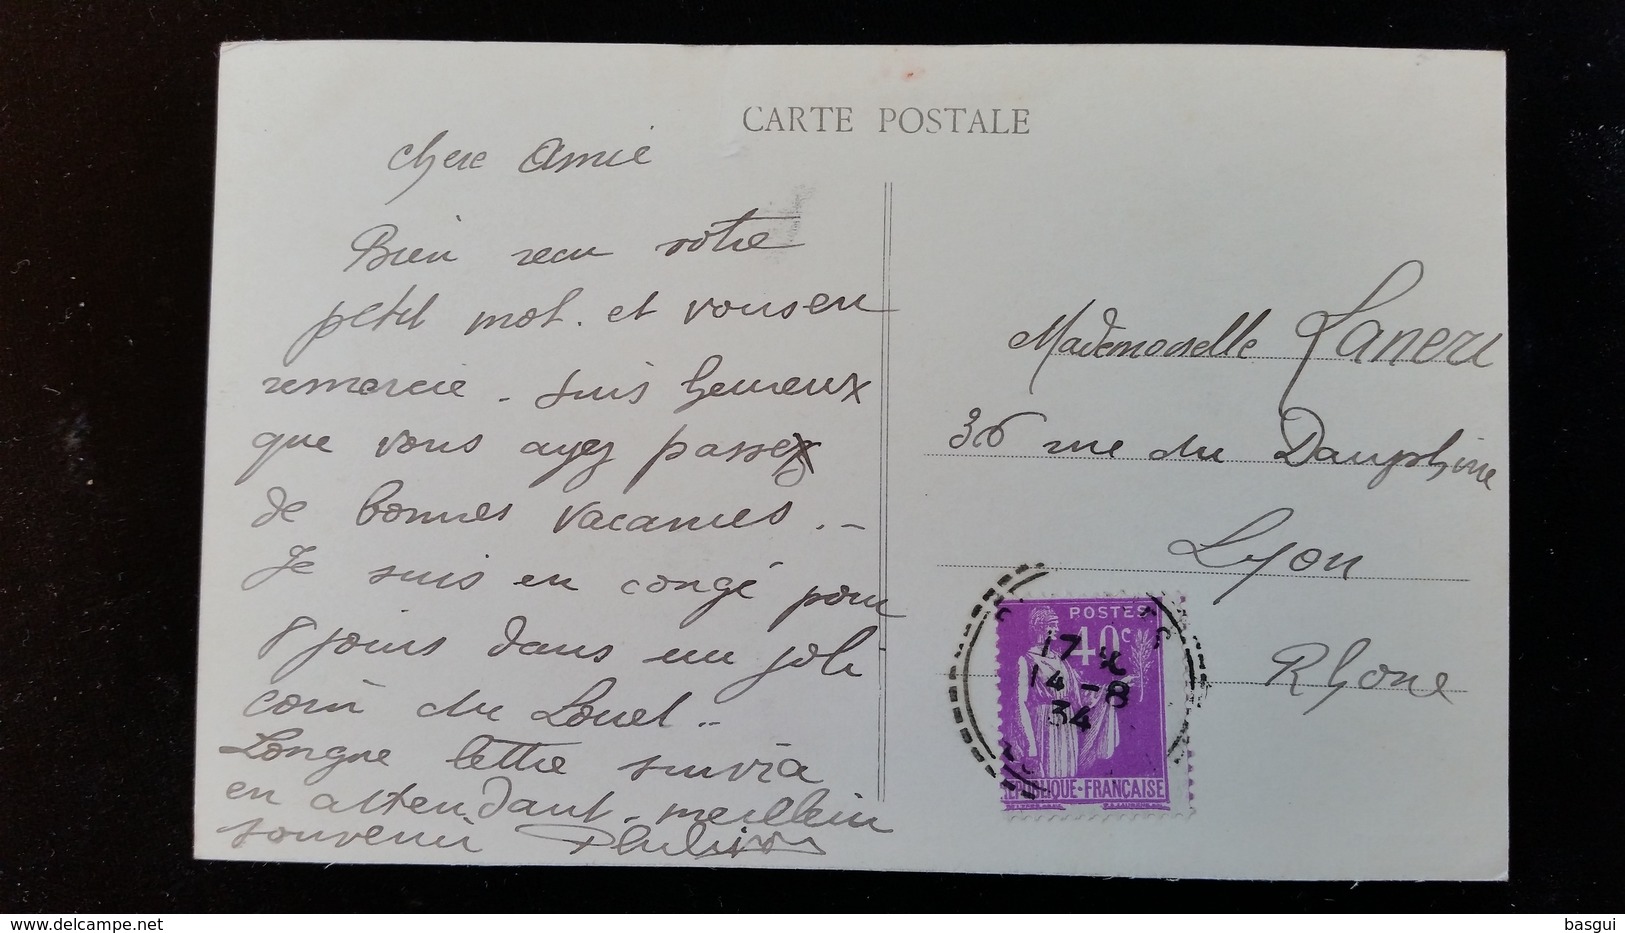 CARTE POSTALE
Chere Amie
Bien recu votre
petit mot. et vous en
remercie. Suis heureux
que vous ayez passez
de bonnes vacances. -
Je suis en congé pour
8 jours dans un joli
coin du Louet..
Longue lettre suivra
en attendant. meilleur
souvenir
Mademoiselle
36 rue du Dauphine
Lyon
Rhone
POSTES
40c
17
14-8
34
REPUBLIQUE-FRANÇAISE
www.delcampe.net
basgui